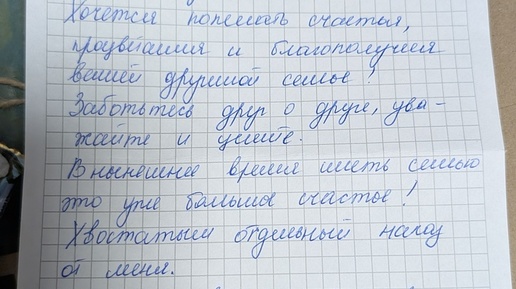 Хочется пожелать счастья,
процветания и благополучия
вашей дружной семье!
Заботьтесь друг о друге, ува-
жайте и цените.
В нынешнее время иметь семью
это уже большое счастье!
Хвостатым отдельный наказ
от меня.